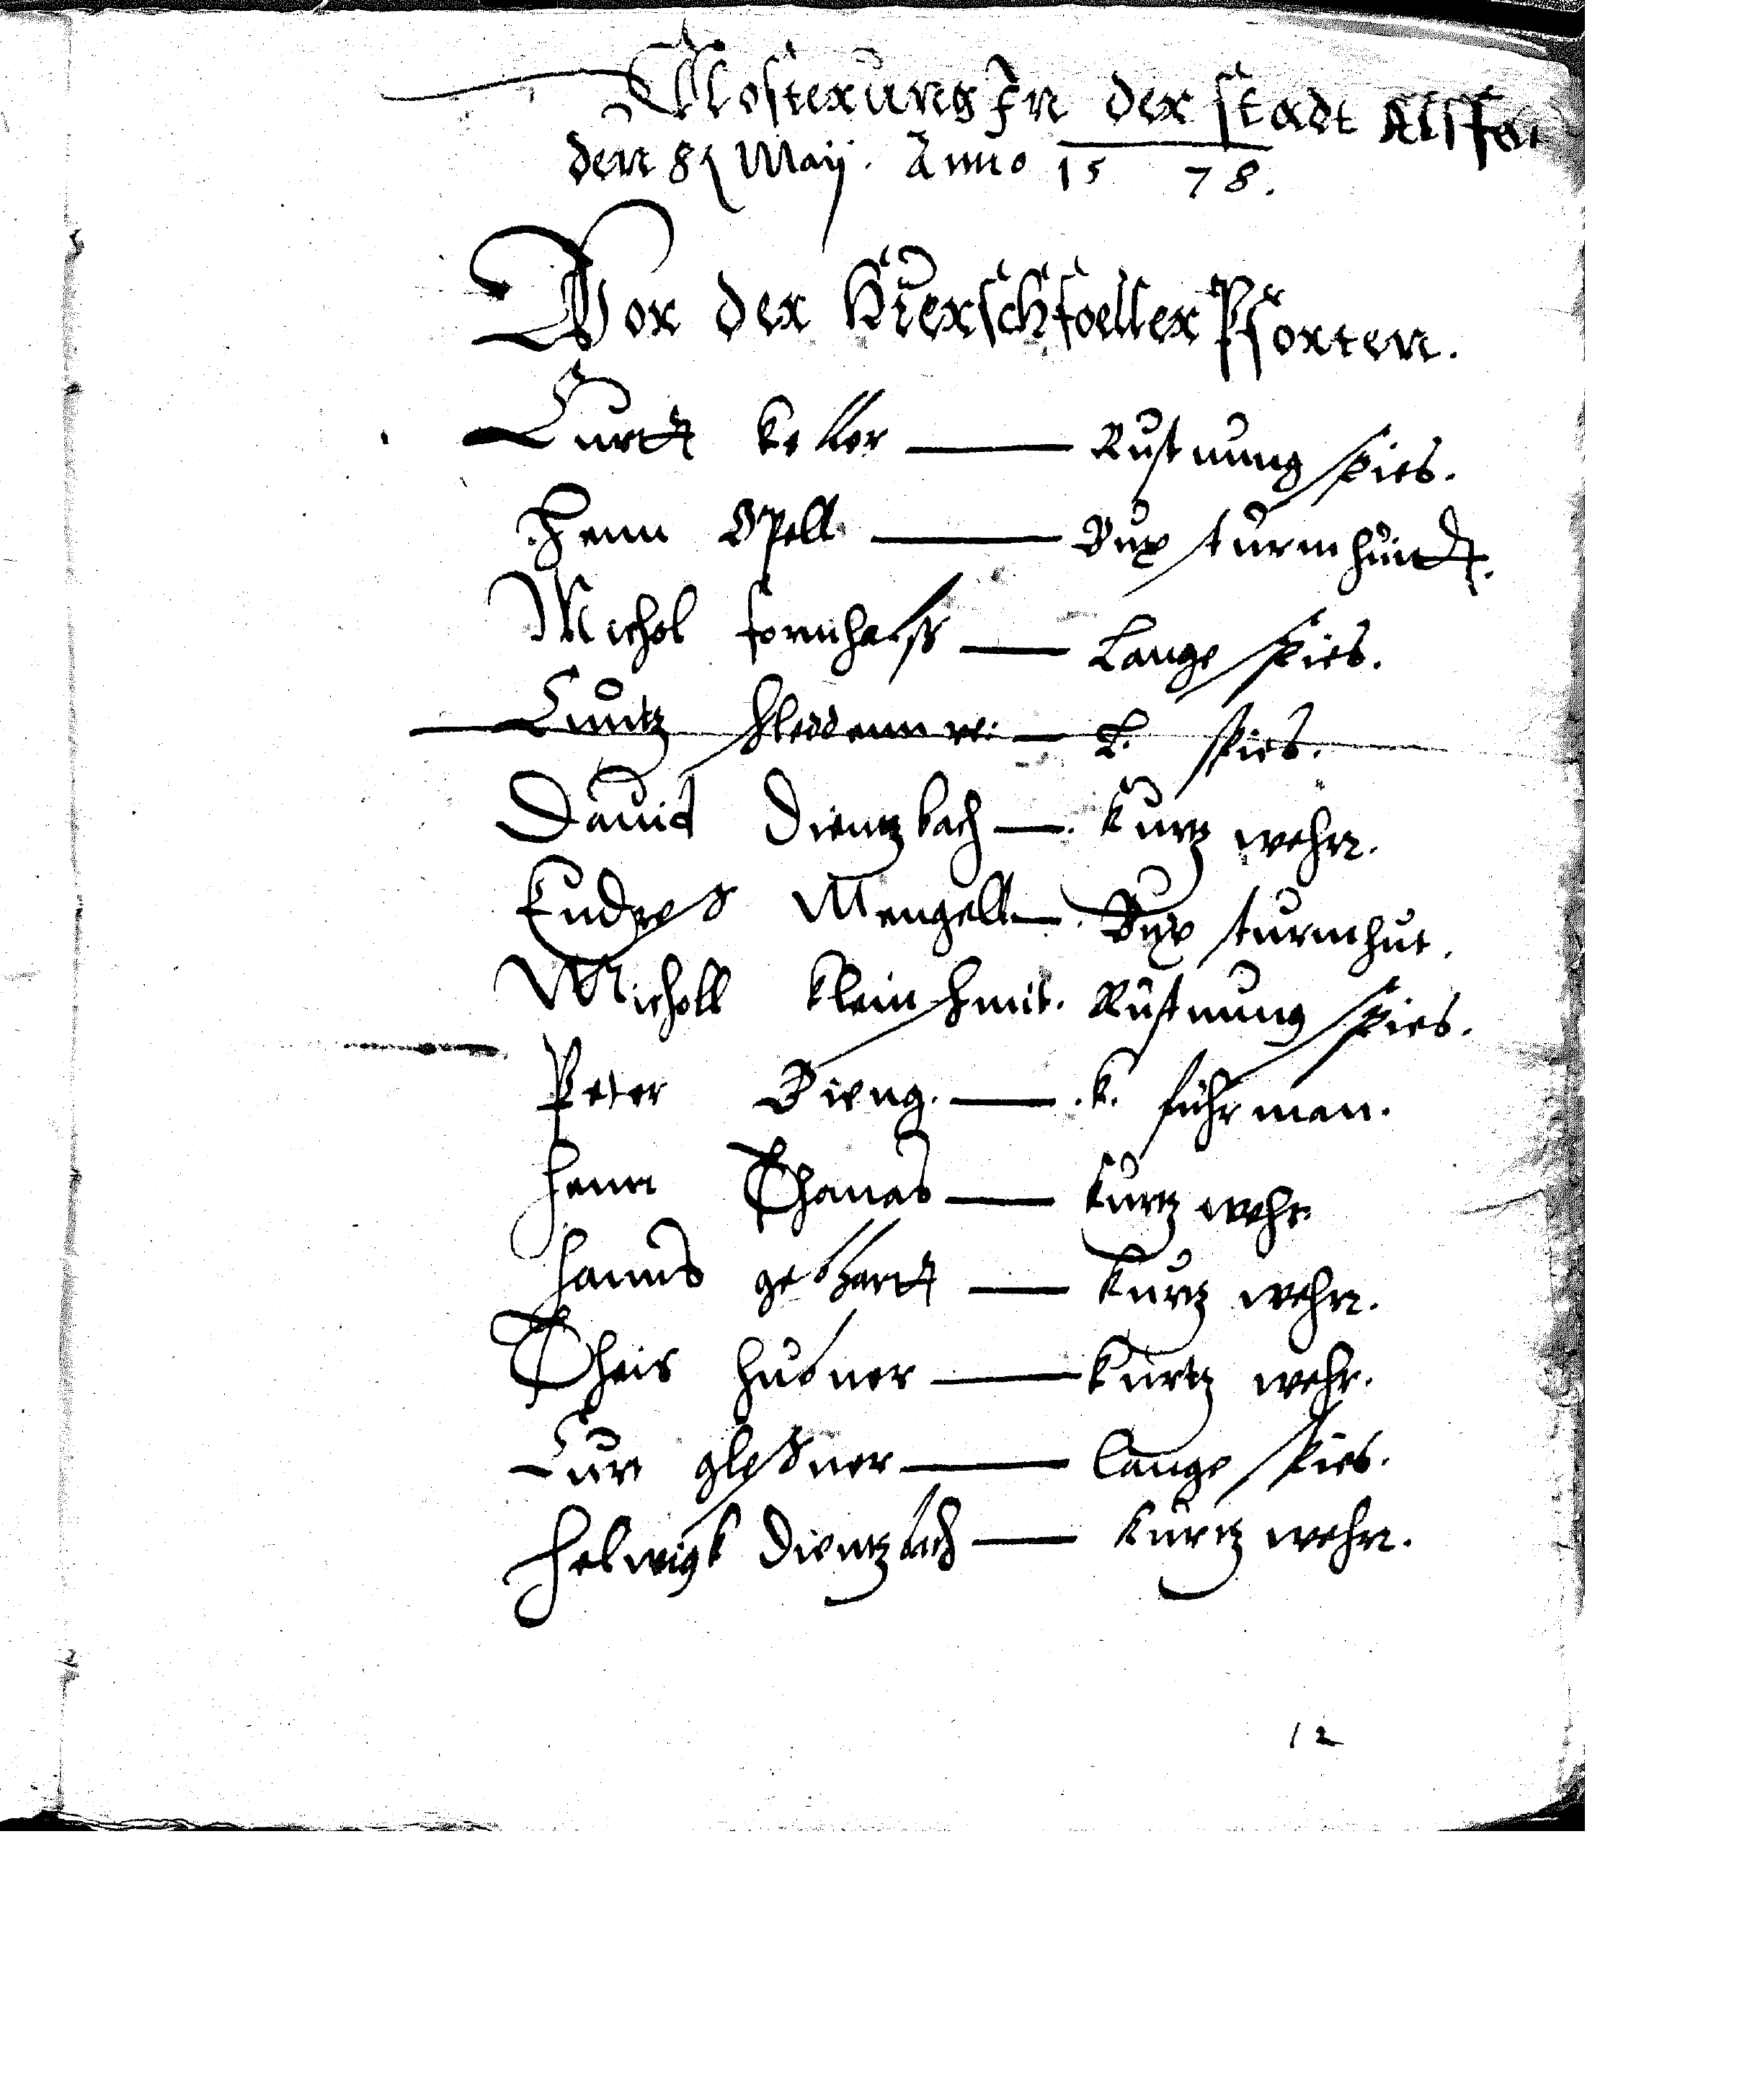 Mosterung In der stadt Alsfe
den 8t May. Anno 1578.
Vor der Hierschfoeller Pforten.
Curdt Keller — Rustnung spies.
Henn Opell — Bux sturmhuidt.
Michel formhalss — Lange spies.
Cuntz — L. spies.
Dauid Dientzbach — Kurtz wehre.
Endres Mengell — Bux sturmhut.
Michell Kleinschmit. Rustnung spies.
Peter Bieng. — K. fuhrman.
Henn Thonas — Kurtz wehr
Hanns gebhardt — Kurtz wehre.
Theis hubner — Kurtz wehr.
Cur gleßner — lange spies.
Helwigk Dientzbach — Kurtz wehre.
12